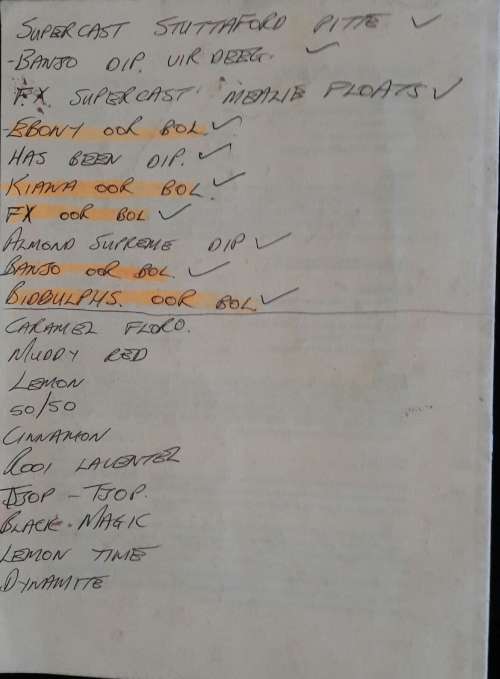 SUPERCAST STUTTAFORD PITTE ✓
-BANJO DIP. VIR DEEG. ✓
FX SUPERCAST MEALIE FLOATS ✓
-EBONY OOR BOL. ✓
HAS BEEN DIP. ✓
KIANA OOR BOL. ✓
FX OOR BOL ✓
ALMOND SUPREME DIP ✓
BANJO OOR BOL. ✓
BIDDULPHS. OOR BOL ✓
CARAMEL FLORO.
MUDDY RED
LEMON
50/50
CINNAMON
ROOI LAVENTEL
TJOP - TJOP.
BLACK MAGIC
LEMON TIME
DYNAMITE